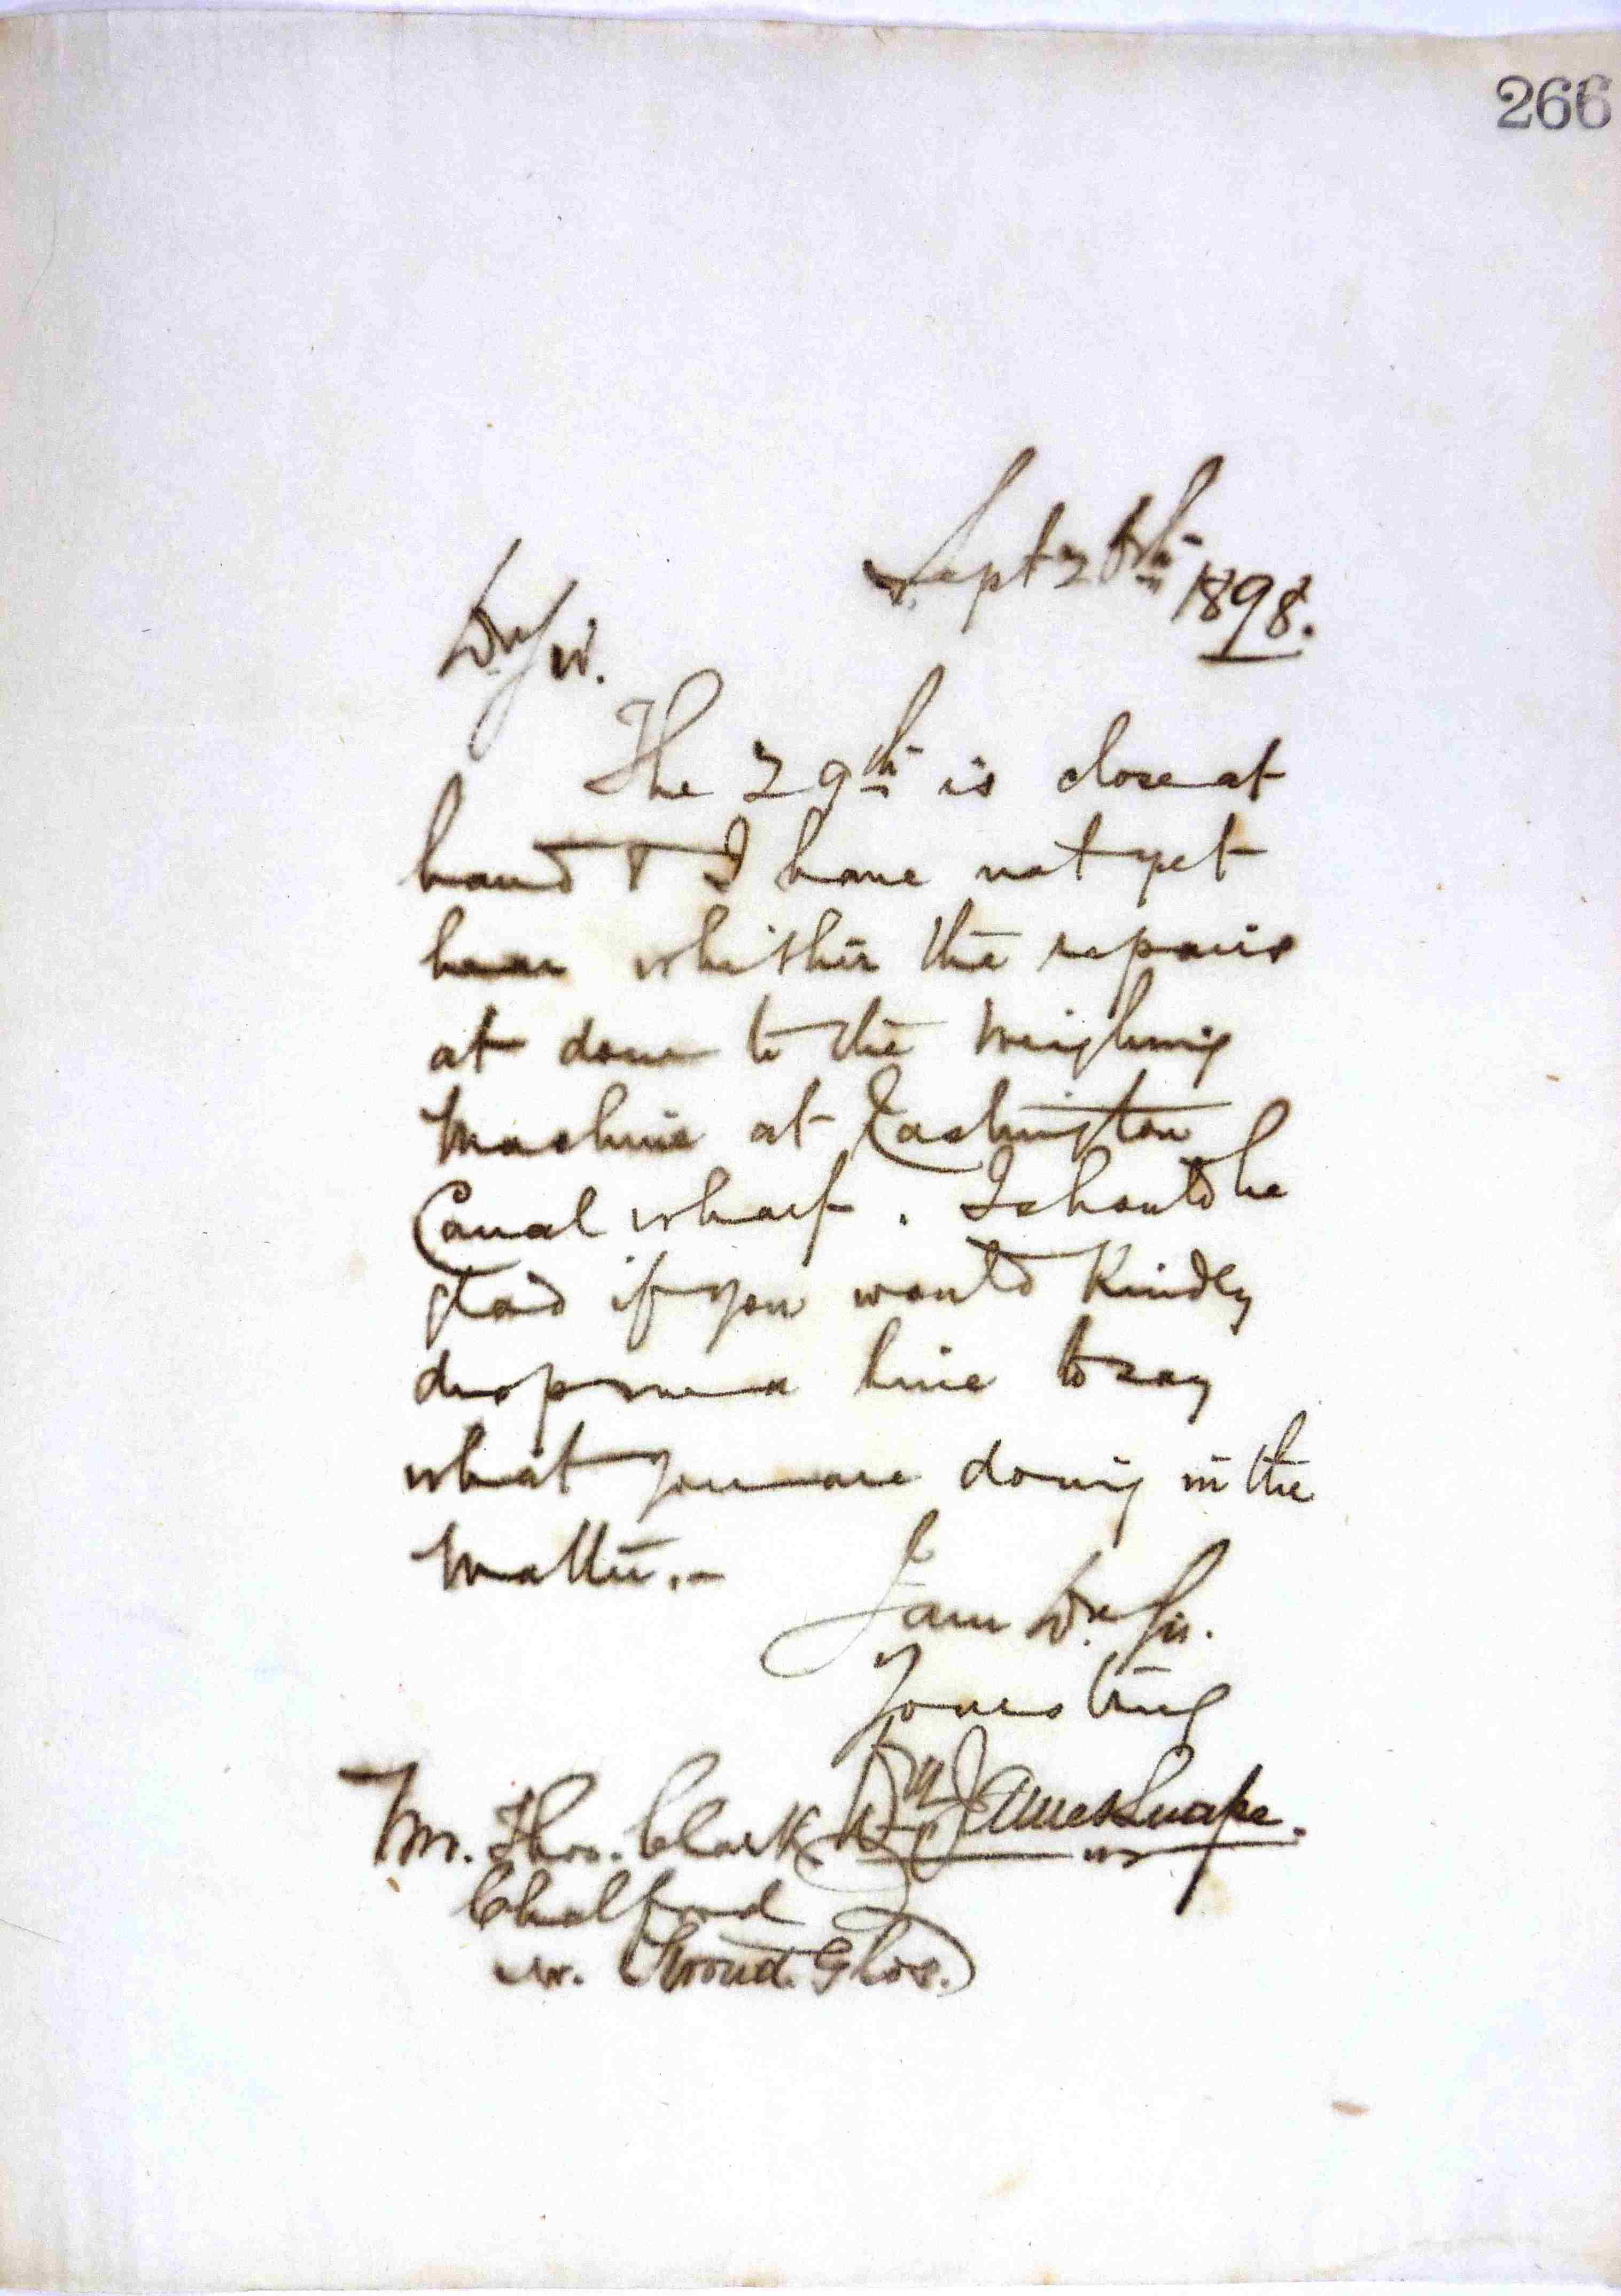 266
Sept 26th 1898.
Dr Sir.
The 29th is close at
hand & I have not yet
hear whether the repairs
at done to the Weighing
Machine at
Canal wharf. I should be
glad if you would Kindly
drop me a line to say
what you are doing in the
Matter.-
I am Dr Sir.
Yours truly
Wm Jame Snape.
Mr. Thos. Clark
Chalford
nr. Stroud. Glos.